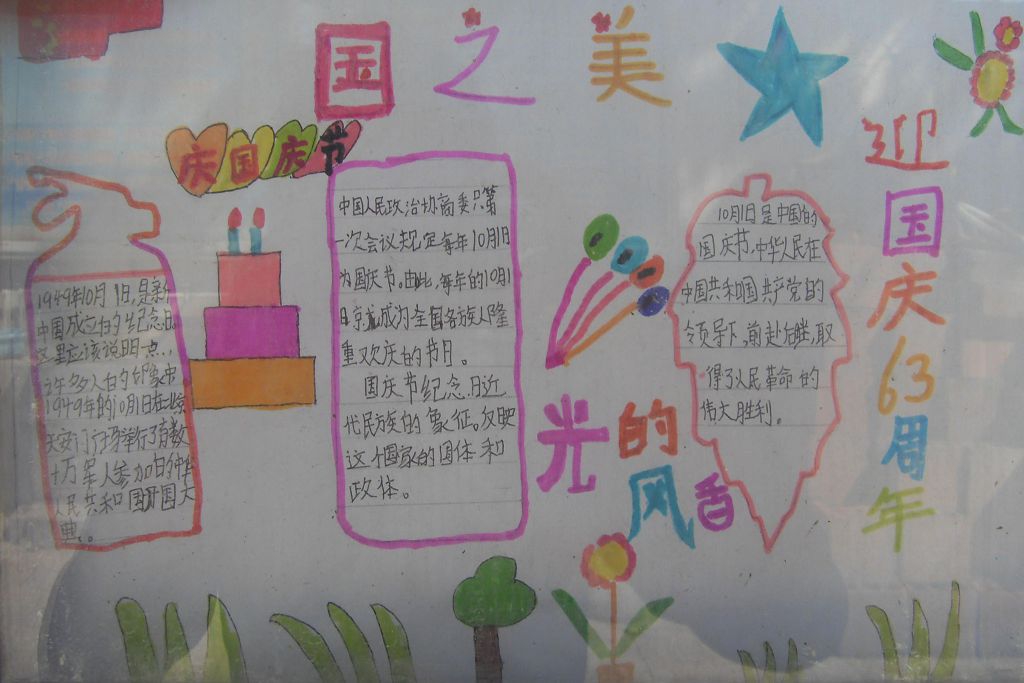 国之美
庆国庆节
1949年10月1日,是新
中国成立的纪念日。
这里应该说明一点,
许多人的印象中
1949年的10月1日在北京
天安门广场举行了有数
十万军人参加的中华
人民共和国开国大
典。
中国人民政治协商委员第
一次会议规定每年10月1日
为国庆节。由此,每年的10月1
日就成为全国各族人民隆
重欢庆的节日。
国庆节纪念日近
代民族的象征,反映
这个国家的国体和
政体。
光的风香
10月1日是中国的
国庆节,中华人民在
中国共和国共产党的
领导下,前赴后继,取
得了人民革命的
伟大胜利。
迎国庆63周年